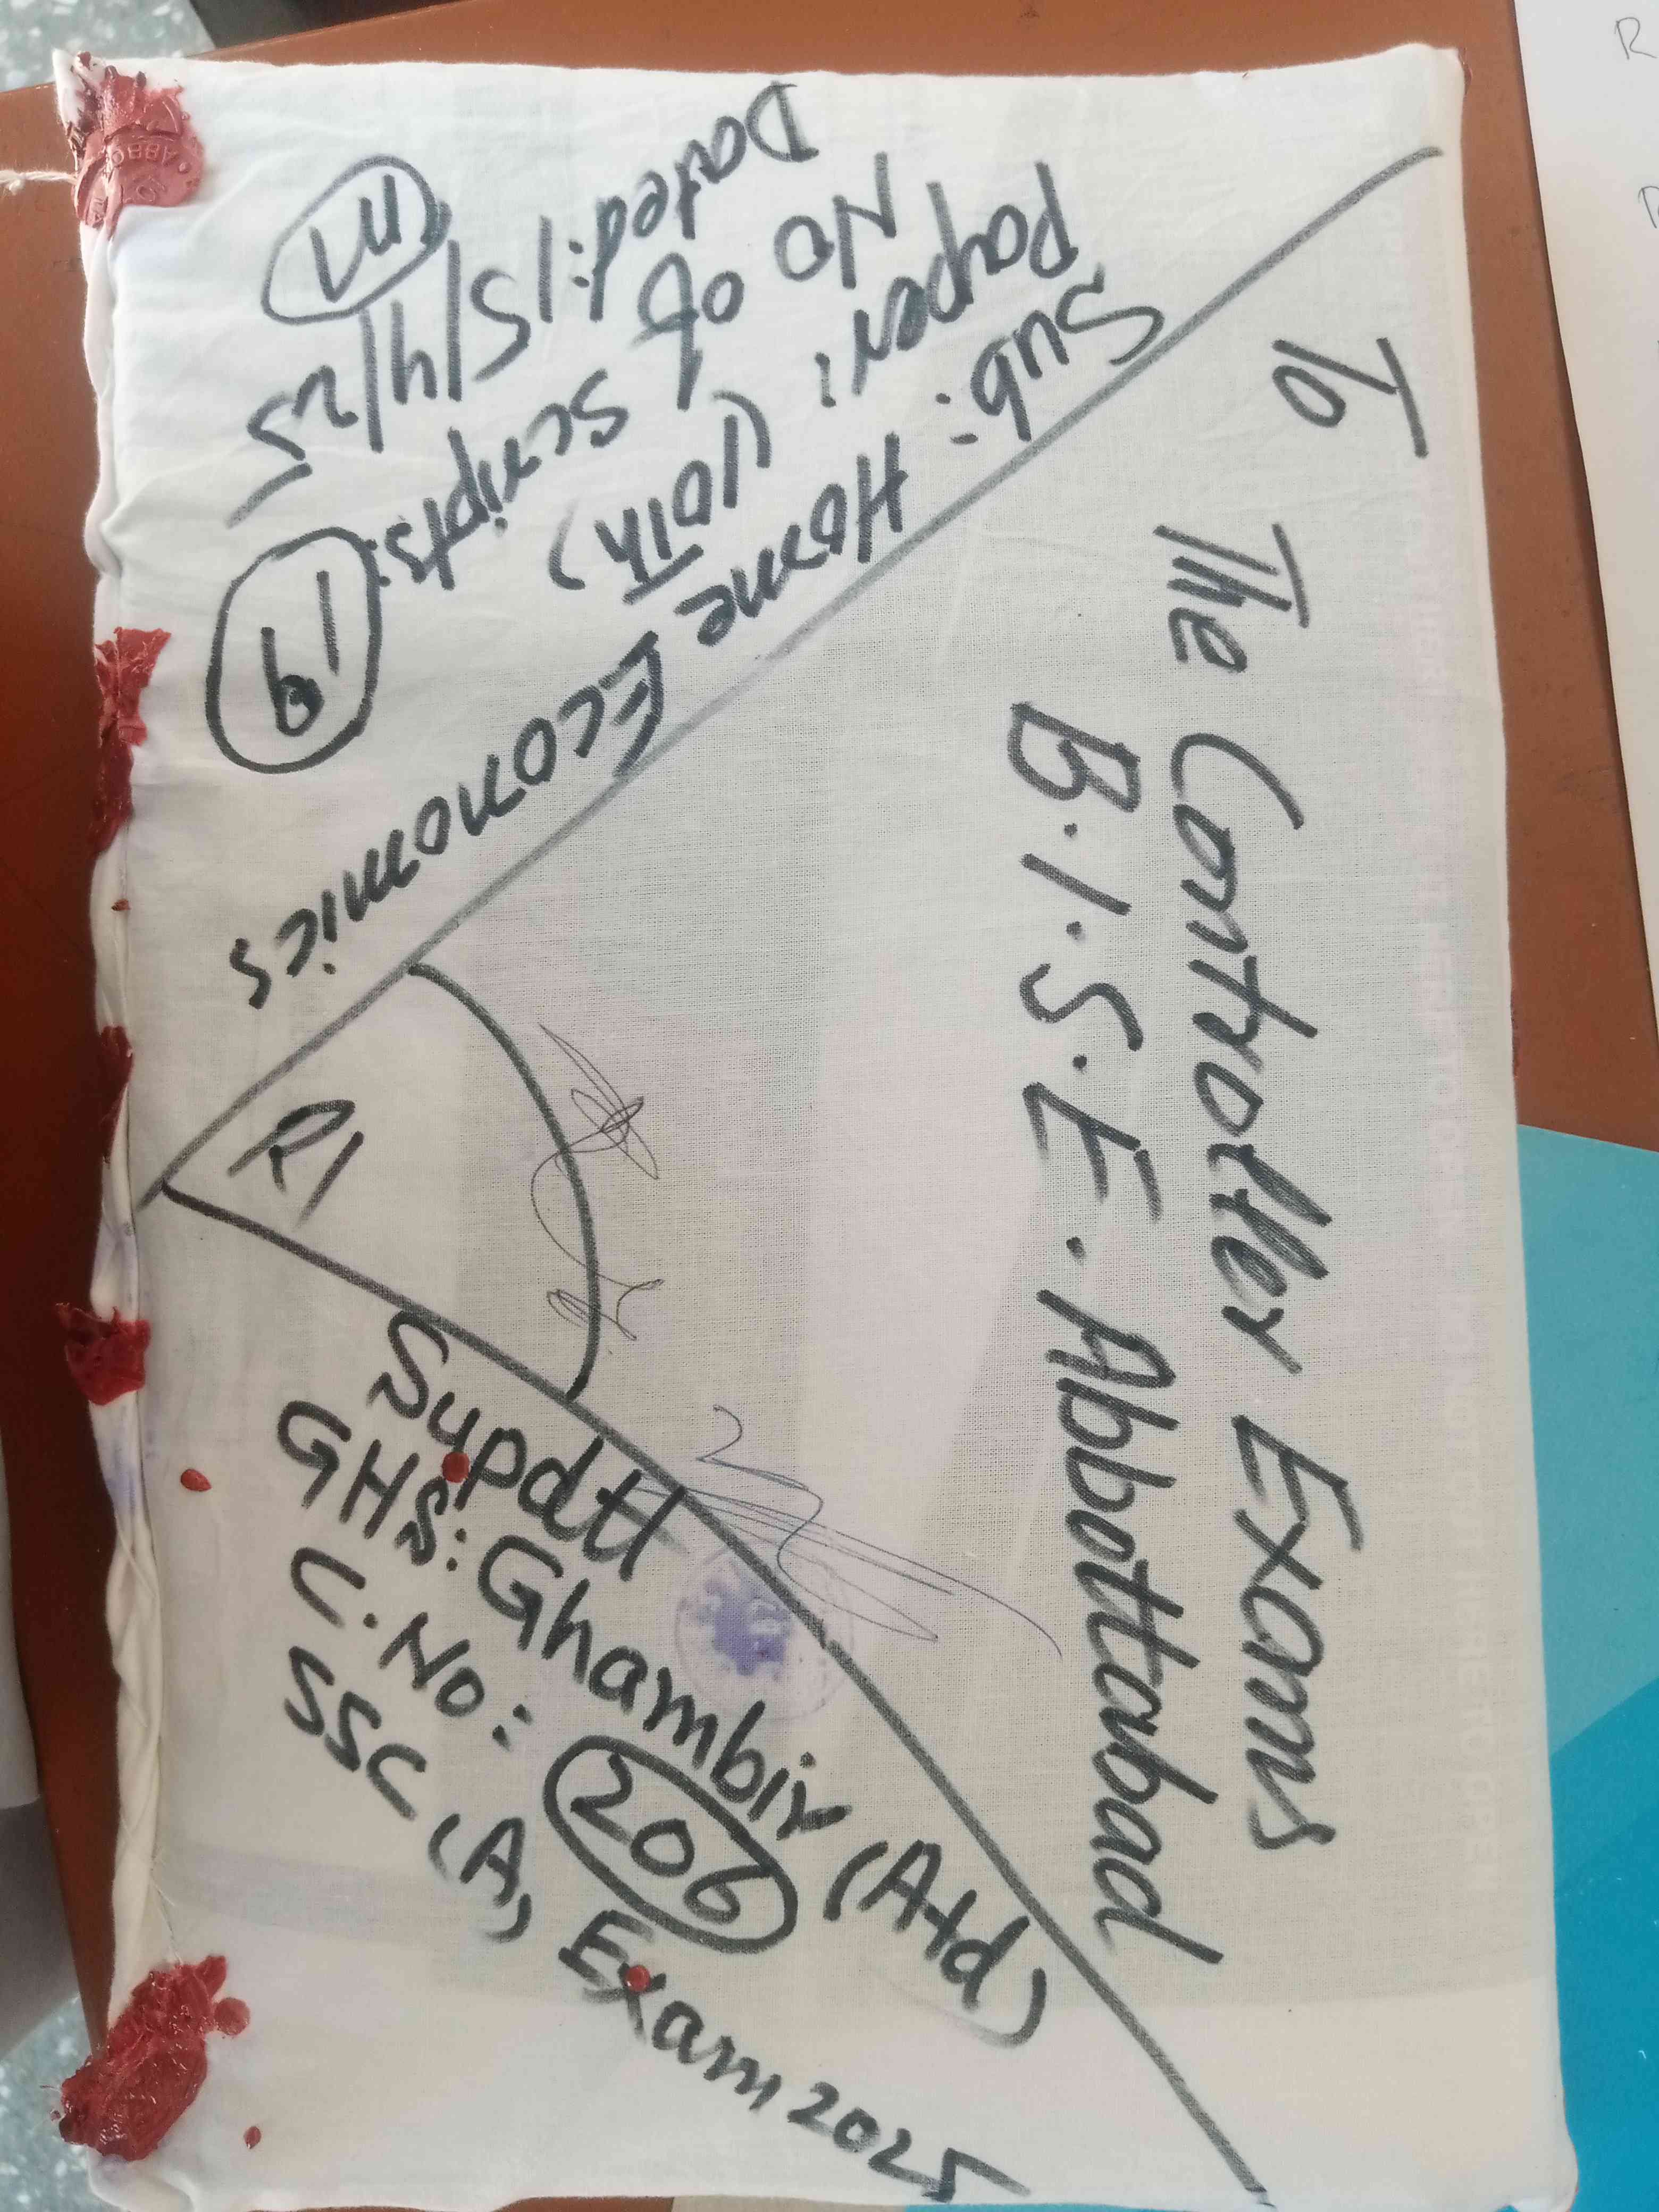 To
The Controller Exams
B.I.S.E. Abbottabad
Sub: Home Economics
Paper: (10th)
No of scripts: 19
Dated: 15/4/25
Supdtt
GHS: Ghambir (Atd)
C.No: 206
SSC (A) Exam 2025